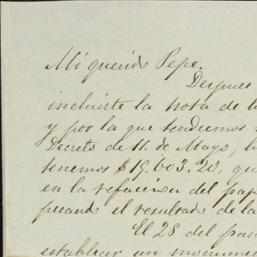 Mi querido Pepe.
Despues
incluirte la nota de l
y por la que tendremos
Decreto de 11. de Mayo, lo
tenemos $19.603.20, qu
en la refaccion del pap
perando el resultado de la
El 28 del pasa
establecer un monumen